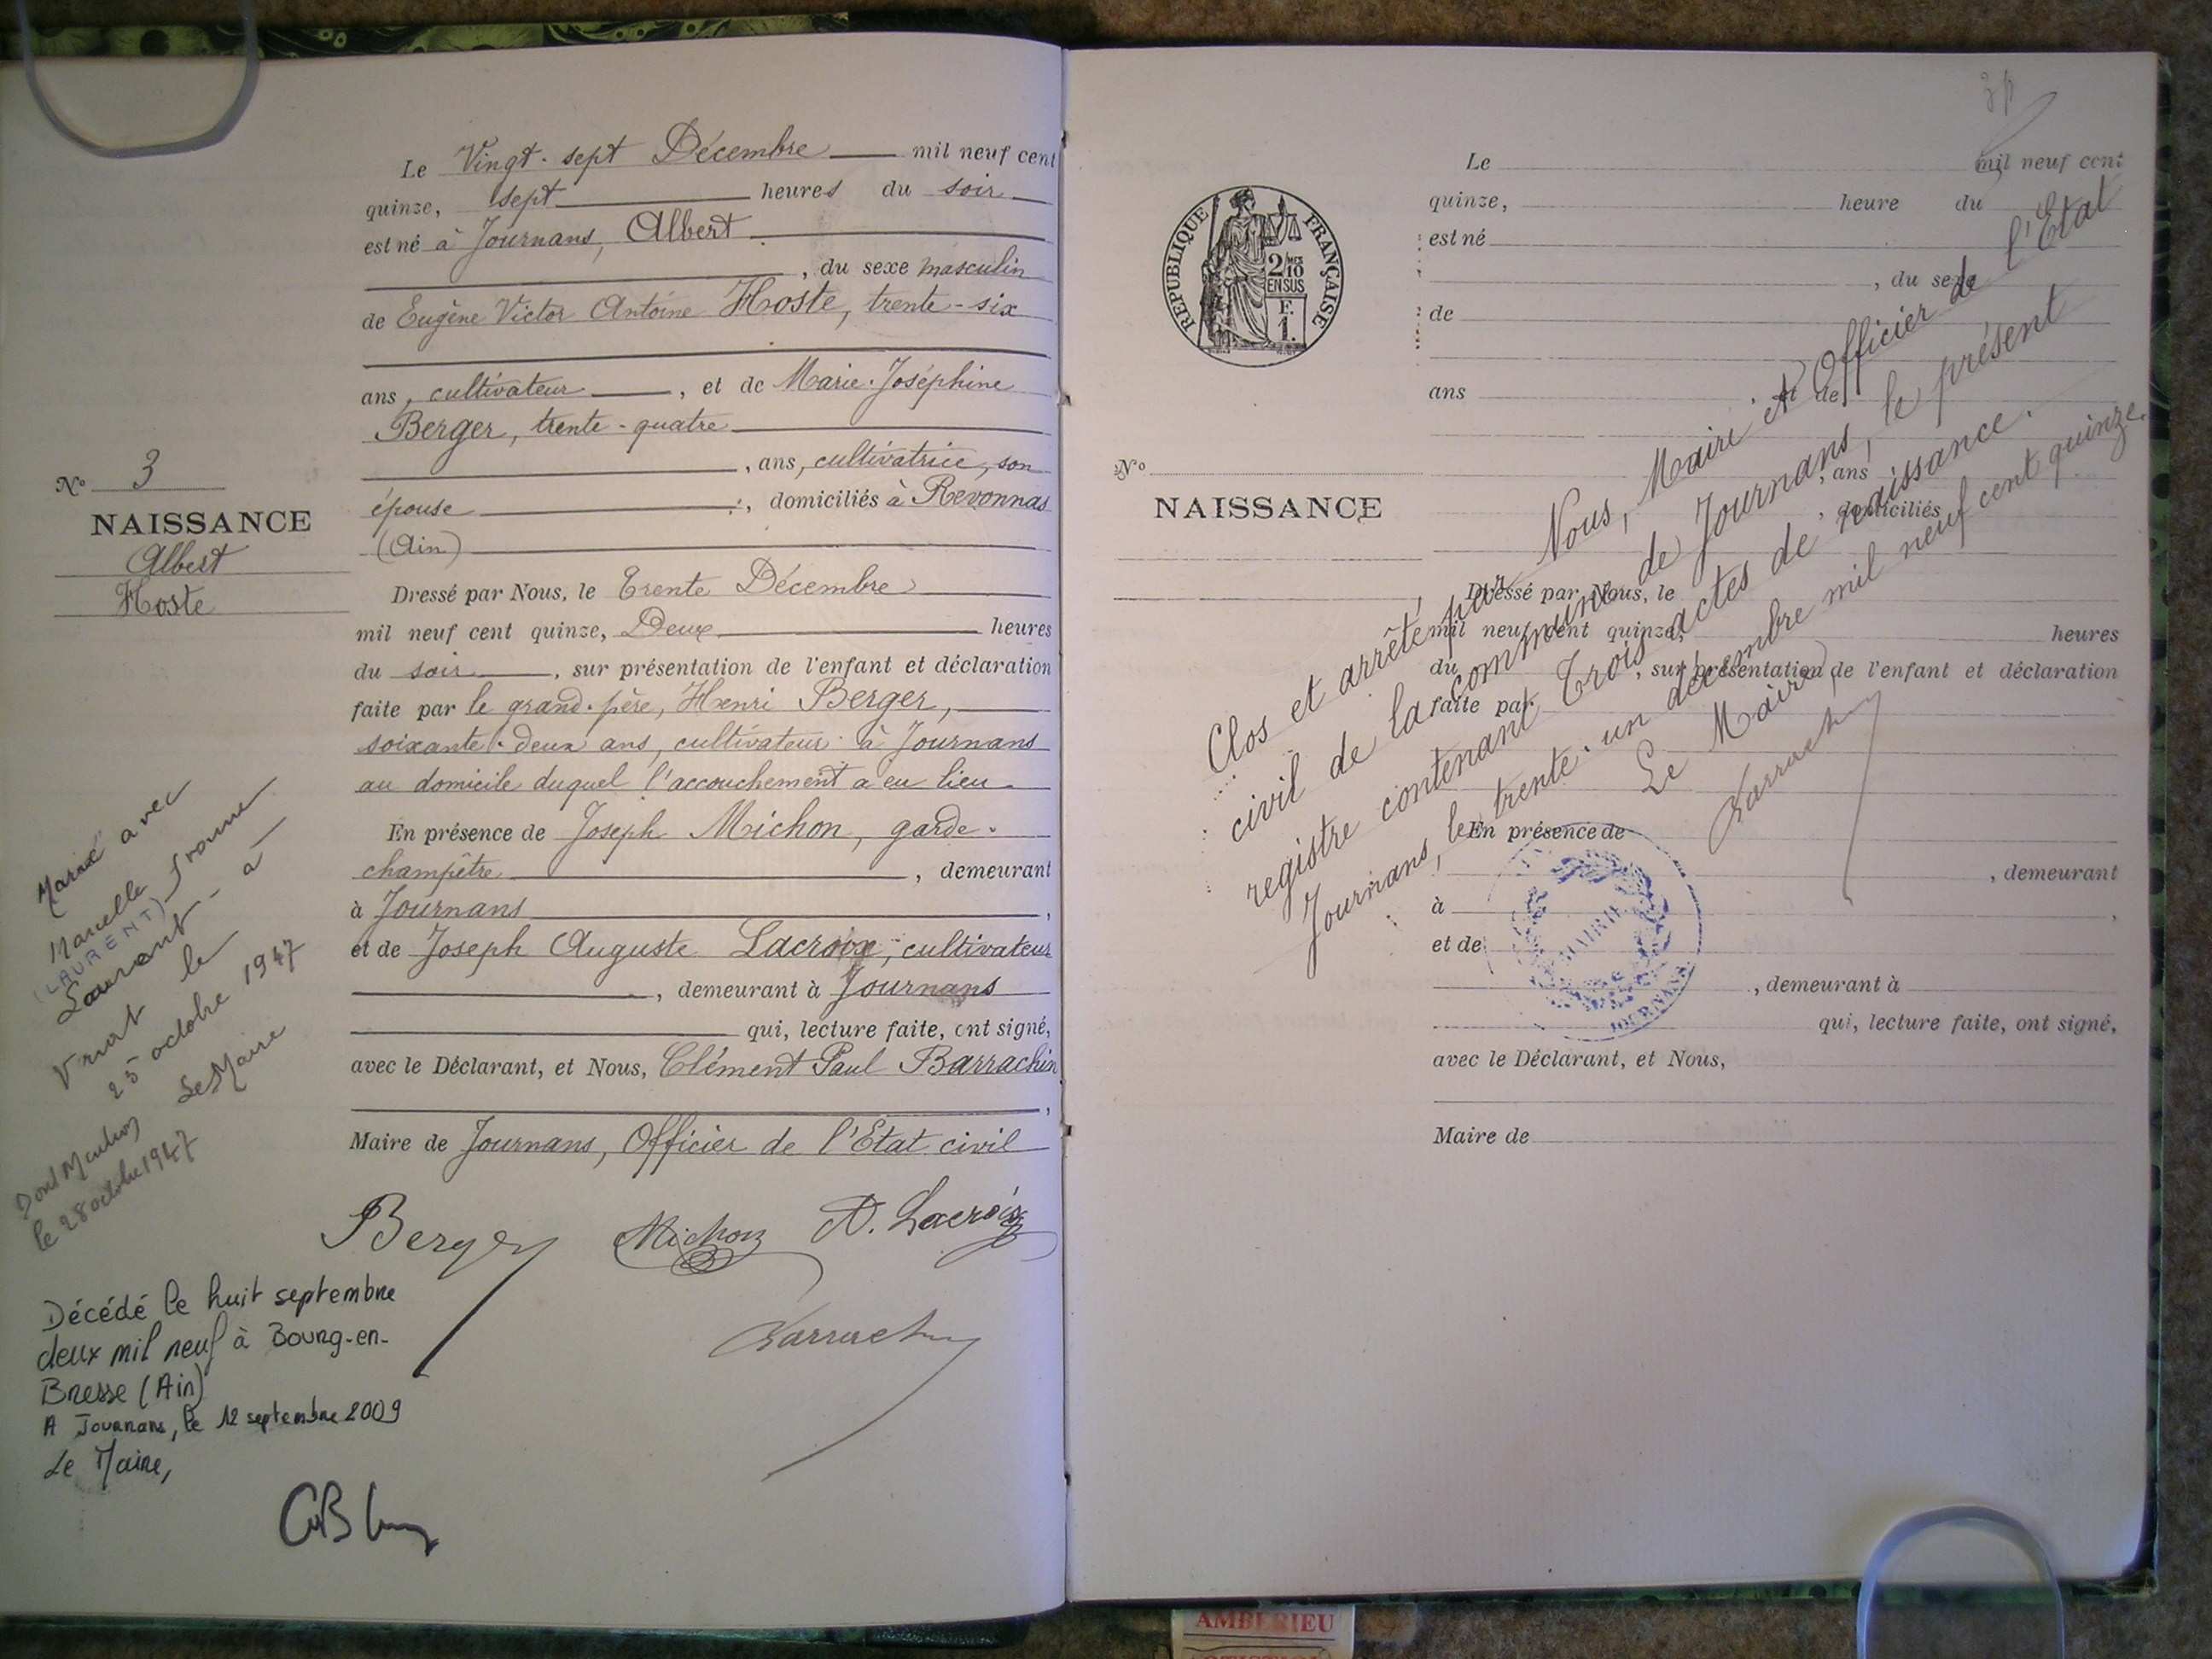 Le Vingt-sept Décembre mil neuf cent
quinze, sept heures du soir
est né à Journans, Albert
, du sexe masculin
de Eugène Victor Antoine Hoste, trente-six
ans, cultivateur, et de Marie-Joséphine
Berger, trente-quatre
, ans, cultivatrice, son
épouse, domiciliés à Revonnas
(Ain)
Dressé par Nous, le Trente Décembre
mil neuf cent quinze, Deux heures
du soir, sur présentation de l'enfant et déclaration
faite par le grand-père, Henri Berger,
soixante-deux ans, cultivateur à Journans
au domicile duquel l'accouchement a eu lieu
En présence de Joseph Michon, garde-
champêtre, demeurant
à Journans,
et de Joseph Auguste Lacroix, cultivateur
, demeurant à Journans
qui, lecture faite, ont signé,
avec le Déclarant, et Nous, Clément Paul Barrachin
,
Maire de Journans, Officier de l'Etat civil
Berger Michon A. Lacroix
Barrachin
No 3
NAISSANCE
Albert
Hoste
Marié avec
Marcelle
(LAURENT)
Laurent - à
le
25 octobre 1947
Le Maire
Dont Mention
le 28 octobre 1947
Décédé le huit septembre
deux mil neuf à Bourg-en-
Bresse (Ain)
A Journans, le 12 septembre 2009
Le Maire,
REPUBLIQUE FRANÇAISE
2/10
EN SUS
F.
1.
No
NAISSANCE
Le mil neuf cent
quinze, heure du
est né
, du sexe
de
ans , et de
, ans
, domiciliés
Dressé par Nous, le
mil neuf cent quinze, heures
du , sur présentation de l'enfant et déclaration
faite par
En présence de
, demeurant
à ,
et de
, demeurant à
qui, lecture faite, ont signé,
avec le Déclarant, et Nous,
Maire de
Clos et arrêté par Nous, Maire et Officier de l'Etat
civil de la commune de Journans, le présent
registre contenant Trois actes de naissance.
Journans, le trente-un décembre mil neuf cent quinze.
Le Maire,
Barrachin
MAIRIE
JOURNANS
AMBERIEU